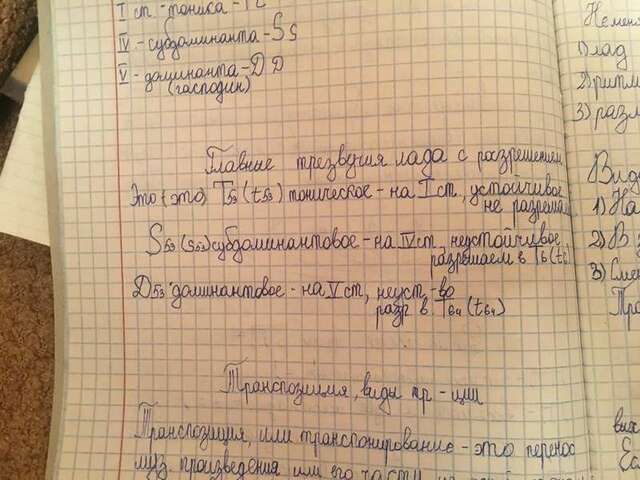 I ст - тоника - t
IV - субдоминанта - S s
V - доминанта - D D
(господин)
Главные трезвучия лада с разрешением
Это (это) T53 (t53) тоническое - на I ст, устойчивое
не разрешаем
S53 (s53) субдоминантовое - на IV ст, неустойчивое,
разрешаем в T6 (t6
D53 доминантовое - на V ст, неуст-во
разр в T64 (t64)
Транспозиция, виды тр - ции
Транспозиция, или транспонирование - это перенос
муз. произведения или его части
Вид
1) На
2) В
3) Смен
Пр
1) лад
2) ритм
3) разм